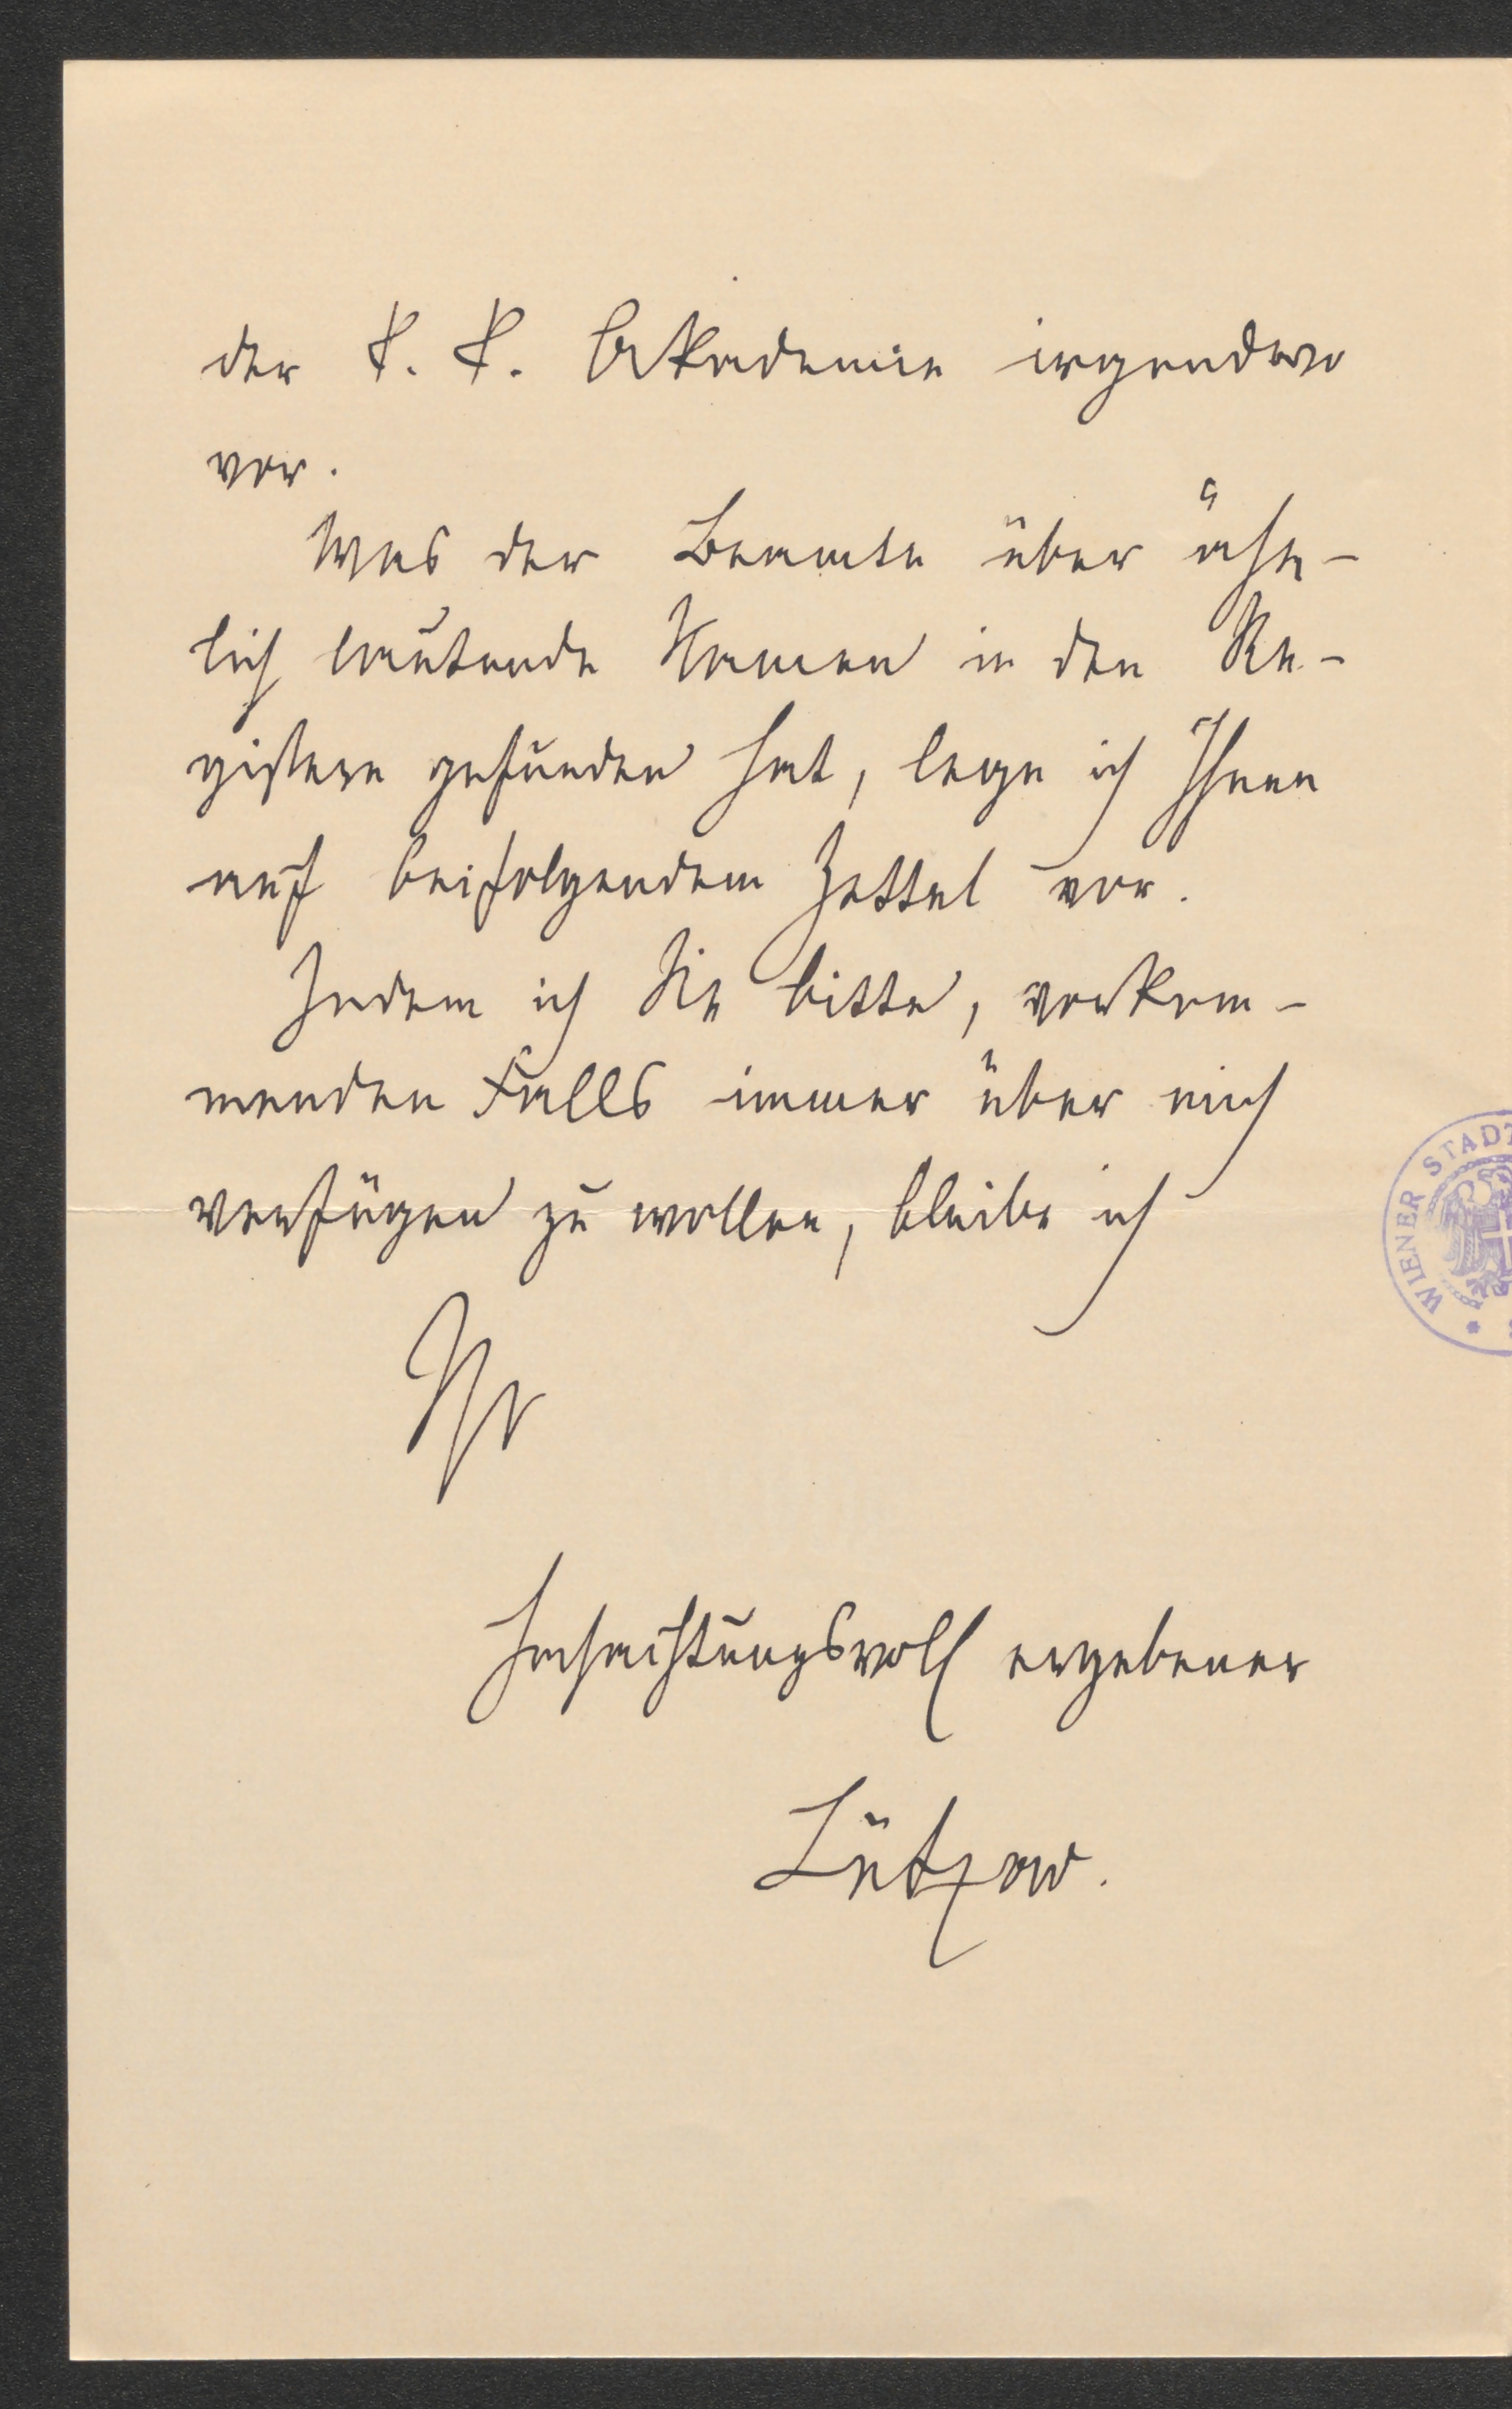 der k. k. Akademie irgendwo
vor.
Was der Beamte über ähn-
lich lautende Namen in den Re-
gistern gefunden hat, lege ich Ihnen
auf beifolgendem Zettel vor.
Indem ich Sie bitte, vorkom-
menden Falls immer über mich
verfügen zu wollen, bleibe ich
Ihr
hochachtungsvoll ergebener
Lützow.
WIENER STADT